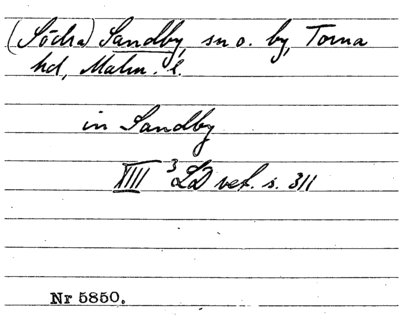 (Södra) Sandby, sn o. by, Torna
hd, Malm. l.
in Sandby
XIII ³LD vet. s. 311
Nr 5850.